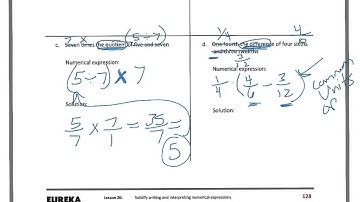 7 x (5÷7)
c. Seven times the quotient of five and seven
Numerical expression:
(5÷7) x 7
Solution:
5/7 x 7/1 = 35/7 =
5
1/4 4/6
d. One fourth the difference of four sixths
and three twelfths
3/12
Numerical expression:
1/4 - (4/6 - 3/12)
common
units
Solution:
EUREKA Lesson 26: Solidify writing and interpreting numerical expressions. 128